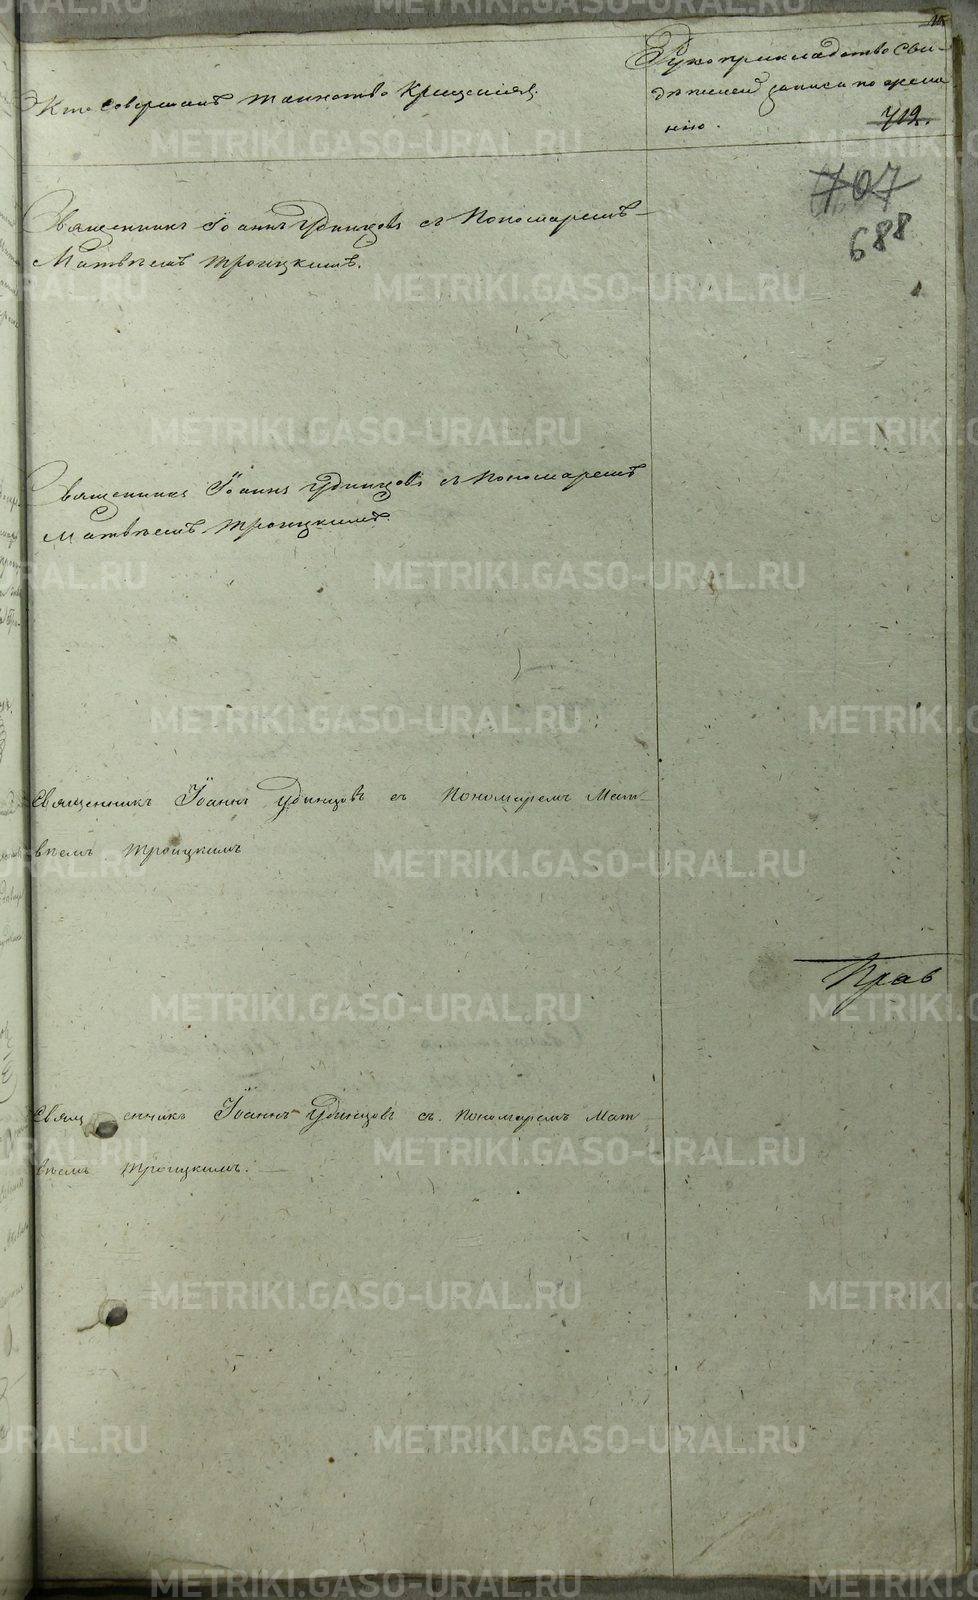 Кто совершалъ таинство Крещенія.
Рукоприкладство сви-
дѣтелей записи по жела-
нію.
719.
707
688
Священникъ Іоаннъ Удинцовъ съ Пономаремъ
Матвѣемъ Троицкимъ.
Священникъ Іоаннъ Удинцовъ съ Пономаремъ
Матвѣемъ Троицкимъ.
Священникъ Іоаннъ Удинцовъ съ Пономаремъ Мат-
вѣемъ Троицкимъ
Прав
Священникъ Іоаннъ Удинцовъ съ Пономаремъ Мат
вѣемъ Троицкимъ.
METRIKI.GASO-URAL.RU